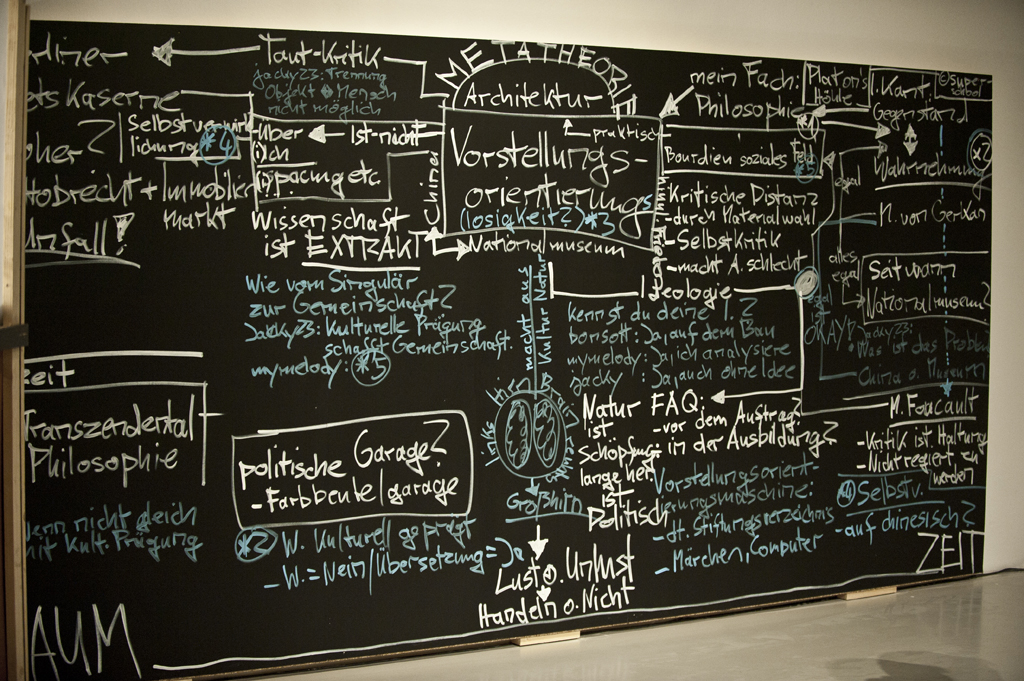 rliner
Taut-Kritik
jacky23: Trennung
Objekt Mensch
nicht möglich
ets Kaserne
her?
Selbstverwirk-
lichung *4
-über
(i)ch
Ist-nicht
(i)pacing etc.
tobrecht + Immobilien
markt
Unfall!
Wissenschaft
ist EXTRAKT
Wie vom Singulär
zur Gemeinschaft?
Jacky23: Kulturelle Prägung
schafft Gemeinschaft.
mymelody: *5
METATHEORIE
Architektur
praktisch
Vorstellungs-
orientierung
(losigkeit?) *3
China
Nationalmuseum
macht aus
Kultur Natur
mein Fach:
Philosophie
Platon's
Höhle
I. Kant.
©super-
Gegenstand
*2
Wahrnehmung
Bourdieu soziales Feld
*5
egal
Kritische Distanz
-durch Materialwahl
-Selbstkritik
-macht A. schlecht
M. von Gerkan
alles
egal
Seit wann
Nationalmuseum?
Ideologie
kennst du deine I.?
bonsott: Ja, auf dem Bau
mymelody: Ja, ich analysiere
jacky: Ja, auch ohne Idee
egal
OKAY!
Jacky23:
Was ist das Problem
China o. Museum
M. Foucault
-Kritik ist Haltung
-Nicht regiert
werden
*4 Selbstv.
-auf chinesisch?
eit
Transzendental
Philosophie
wenn nicht gleich
mit Kult. Prägung
politische Garage?
-Farbbeutelgarage
*2 W. Kulturell geprägt
-W. = Nein/Übersetzung = Ja
links
Großhirn
Lust o. Unlust
Handeln o. Nicht
Natur
ist
Schöpfung:
lange her.
ist
Politisch
FAQ:
-vor dem Auftrag?
in der Ausbildung?
Vorstellungsorient-
ierungsmaschine:
-dt. Stiftungsverzeichnis
-Märchen, Computer
ZEIT
AUM